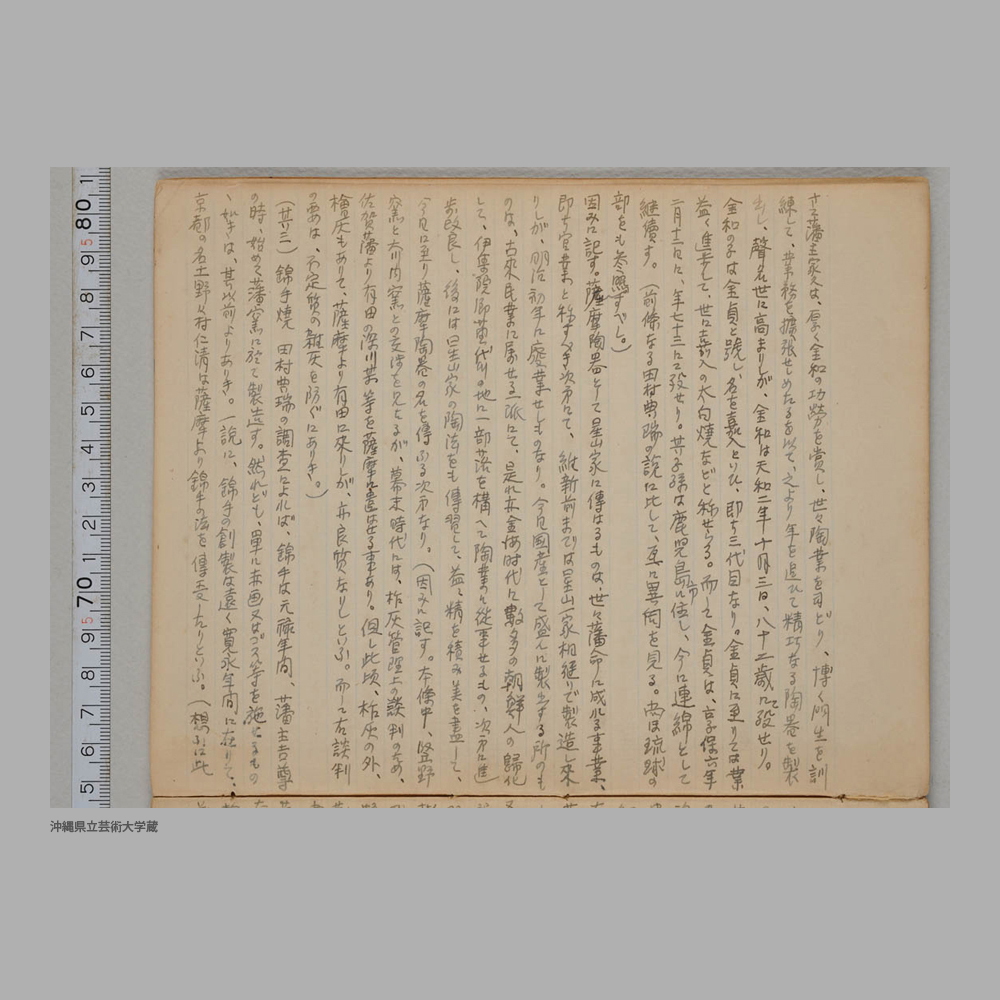 さる藩主家久は、厚く金和の功勞を賞し、世々陶業を司どり、博く門生を訓
練して、業務を擴張せしめたるを以て、之より年を追ひて精巧なる陶器を製
出し、聲名世に高まりしが、金和は天和二年十月三日、八十二歳にて歿せり。
金和の子は金貞と號し、名を嘉入といひ、即ち三代目なり。金貞に至りては業
益々進歩して、世に嘉入の太白燒などと称せらる。而して金貞は、享保六年
二月十二日に、年七十三にて歿せり。其子孫は鹿児島市に住し、今に連綿として
継續す。(前條なる田村豊瑞の説に比して、互に異同を見る。尚ほ琉球の
部をも参照すべし。)
因みに記す。薩摩陶器として星山家に傳はるものは、世々藩命に成れる事業、
即ち官業と称すべき次第にて、維新前までは星山一家相継いで製造し來
りしが、明治初年に廢業せしものなり。今日國産として盛んに製出する所のも
のは、古來民業に属せる一派にて、是れ亦金海時代に數多の朝鮮人の歸化
して、伊集院郷苗代の地に一部落を構へて陶業に從事せるもの、次第に進
歩改良し、後には星山家の陶法をも傳習して、益々精を積み美を盡して、
今日に至り薩摩陶器の名を傳ふる次第なり。(因みに記す。本條中、竪野
窯と大川内窯との交渉を見るが、幕末時代には、柞灰管理上の談判のため、
佐賀藩より有田の深川某等を薩摩に遣はせる事あり。但し此頃、柞灰の外、
檜灰もありて、薩摩より有田に來りしが、亦良質なりしといふ。而して右談判
の要は、不定質の雜灰を防ぐにありき。)
(其三) 錦手燒 田村豊瑞の調査によれば、錦手は元祿年間、藩主吉尊
の時、始めて藩窯に於て製造す。然れども、單に赤画又はゴス等を施せるもの
ゝ如きは、其以前よりありき。一説に、錦手の創製は遠く寛永年間に在りて、
京都の名工野々村仁清は薩摩より錦手の法を傳受したりといふ。(想ふに此
沖縄県立芸術大学蔵